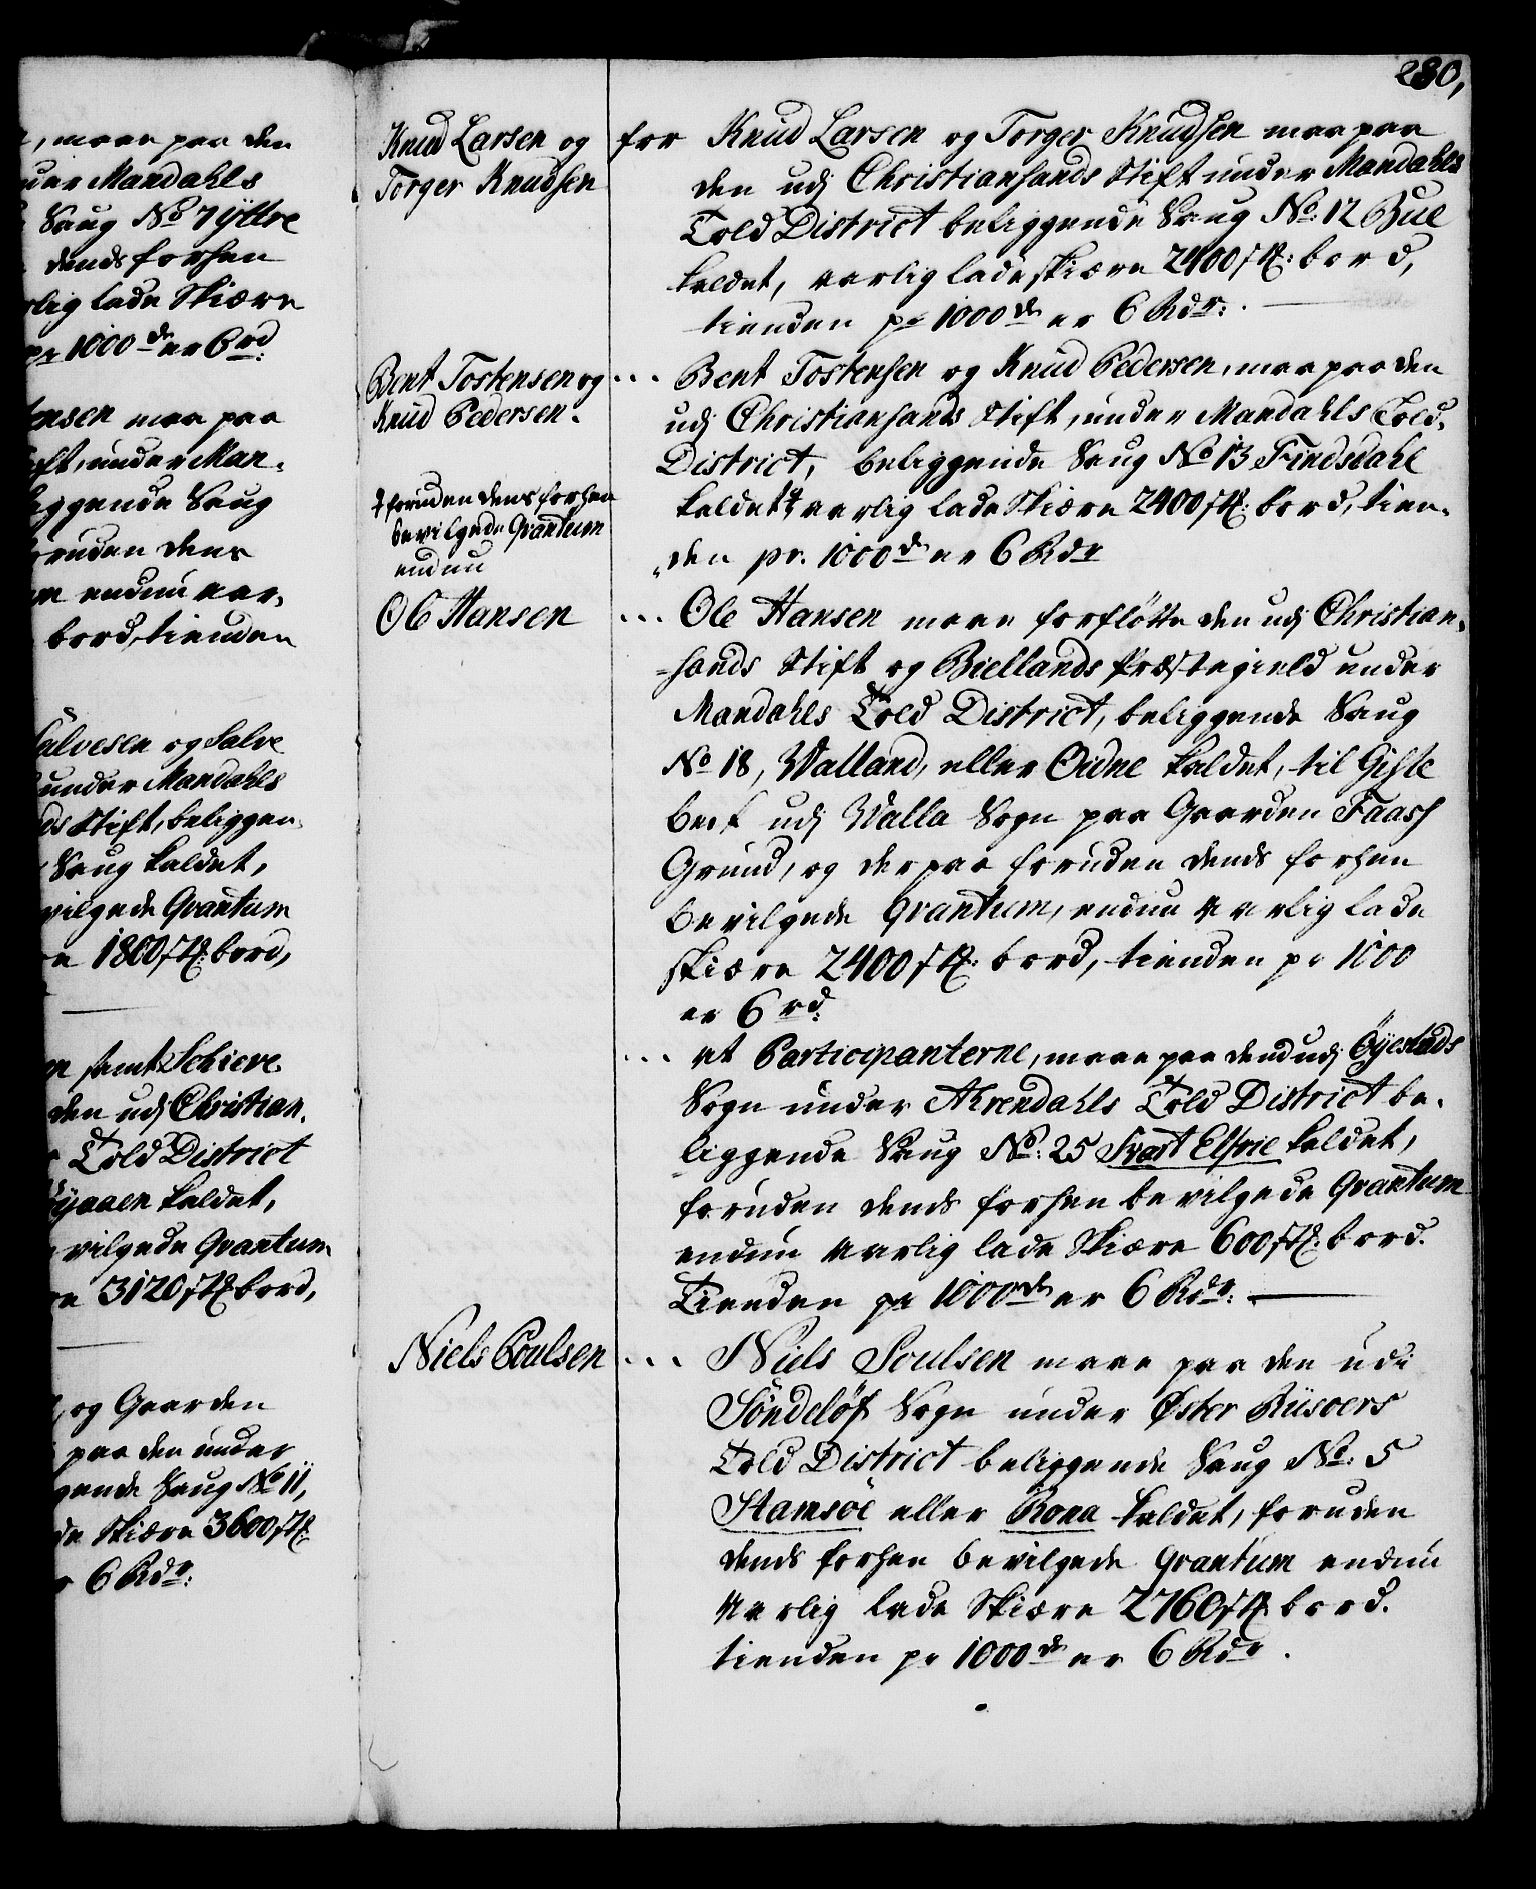 280,
, maae paa den
under Mandahls
Saug No 7 ÿttre
dends forhen
rlig lade Skiære
pr 1000 de er 6 rd:
ensen maa paa
ift, under Man-
iggende Saug
oruden dens
endnu aar-
bord, tienden
Salvesen og Salve
under Mandahls
ds Stift, beliggen-
Saug kaldet,
vilgede Qvantum
re 1800 stk: bord,
samt Schieve
den udj Christian-
Told District
kaldet,
vilgede Qvantum
re 3120 stk bord,
og Gaarden
paa den under
gende Saug No 11,
de Skiære 3600 stk
6 Rdr:
Knud Larsen og
Torger Knudsen
for Knud Larsen og Torger Knudsen maa paa
den udj Christiansands Stift under Mandahls
Told District beliggende Saug No: 12 Bue
kaldet, aarlig lade skiære 2400 stk: bord,
tienden pr 1000 de er 6 Rdr:
Bent Tostensen og
Knud Pedersen.
... Bent Tostensen og Knud Pedersen, maa paa den
udj Christiansands Stift, under Mandahls Told-
District, beliggende Saug No 13 Findsdahl
kaldet, ‡ aarlig lade Skiære 2400 stk: bord, tien-
den pr. 1000 de er 6 Rdr
‡ foruden dens forhen
bevilgede Qvantum
endnu
Ole Hansen
... Ole Hansen maae forflötte den udj Christian-
sands Stift og Biellands Præstegield under
Mandahls Told District, beliggende Saug
No 18, Walland, eller Oidne kaldet, til Gisle
bek udj Walla Sogn paa Gaarden Faass
Grund, og derpaa foruden dends forhen
bevilgede Qvantum, endnu aarlig lade
skiære 2400 stk: bord, tienden pr 1000
er 6 rd:
... at Participanterne, maae paa dend udj Öÿestads
Sogn under Ahrendahls Told District be-
liggende Saug No: 25 Svart Elfvie kaldet,
foruden dends forhen bevilgede Qvantum
endnu aarlig lade Skiære 600 stk: bord.
Tienden pr 1000 de er 6 Rdr:
Niels Poulsen
... Niels Poulsen maae paa den udi
Söndelöf Sogn under Øster Riisoers
Told District beliggende Saug No: 5
Stamsöe eller Rona kaldet, foruden
dends forhen bevilgede Qvantum endnu
Aarlig lade Skiære 2760 stk bord.
tienden pr 1000 de er 6 Rdr.